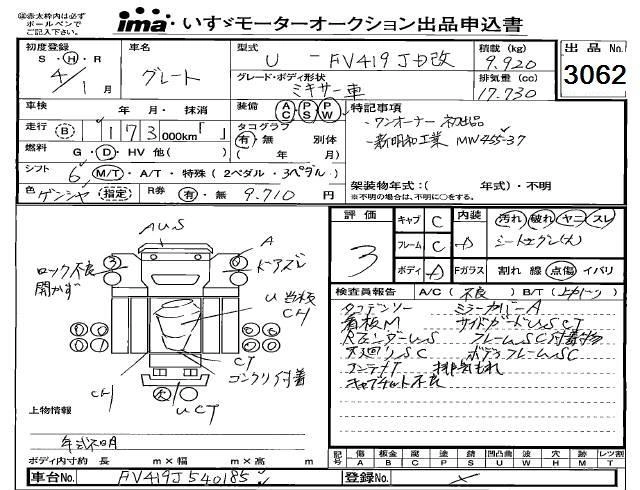 ㊟赤太枠内は必ず
ボールペンで
ご記入下さい。
ima いすゞモーターオークション出品申込書
初度登録 S・H・R 4/1月
車名 グレート
型式 U - FV419JD改
積載(kg) 9.920
出品No. 3062
グレード・ボディ形状 ミキサー車
排気量(cc) 17.730
車検 年 月・抹消
装備 AC PS PW
特記事項
・ワンオーナー 初出品
・新明和工業 MW455-37
走行 (B) 173000km「 」
タコグラフ 有・無 別体
( 年 月)
燃料 G・D・HV 他( )
シフト 6 M/T・A/T・特殊(2ペダル・3ペダル)
架装物年式:( 年式)・不明
※不明の場合は、不明に○をする。
色 ゲンシャ 指定 R券 有・無 9.710円
評価 3
キャブ C
フレーム C
ボディ A
内装 A 汚れ 破れ ヤニ スレ
シートエグレ(大)
Fガラス 割れ 線 点傷 イパリ
AUS
A
ロック不良
開かず
ドアズレ
CH
CT
コンクリ付着
CH
UCT
検査員報告 A/C(不良) B/T( )
タコデンソー ミラーカバーA
看板M サイドガードUSCT
フレームSC付着物
ボデーフレームSC
キャブチルト不良
上物情報
年式不明
ボディ内寸約 長 m×幅 m×高 m
記号 傷A 板金B 腐C 塗P 錆S 凹凸曲U 波W 穴H 跡M レツ割T
車台No. FV419J540185
登録No.